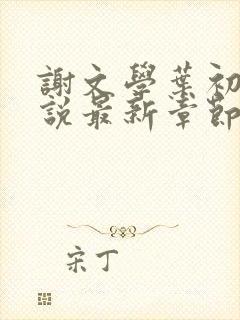 謝文學葉初
說最新章節
宋丁